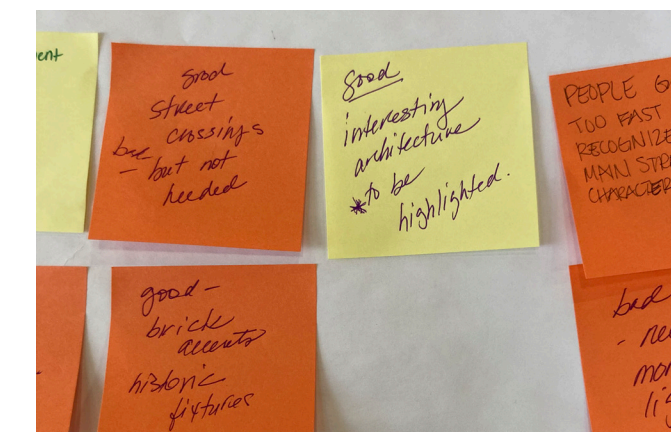 ent
Good
street
crossings
bad
- but not
heeded
Good
interesting
architecture
*to be
highlighted.
PEOPLE G
TOO FAST
RECOGNIZE
MAIN STR
CHARACTER
good -
brick
accents
historic
fixtures
bad
- ne
mor
lig